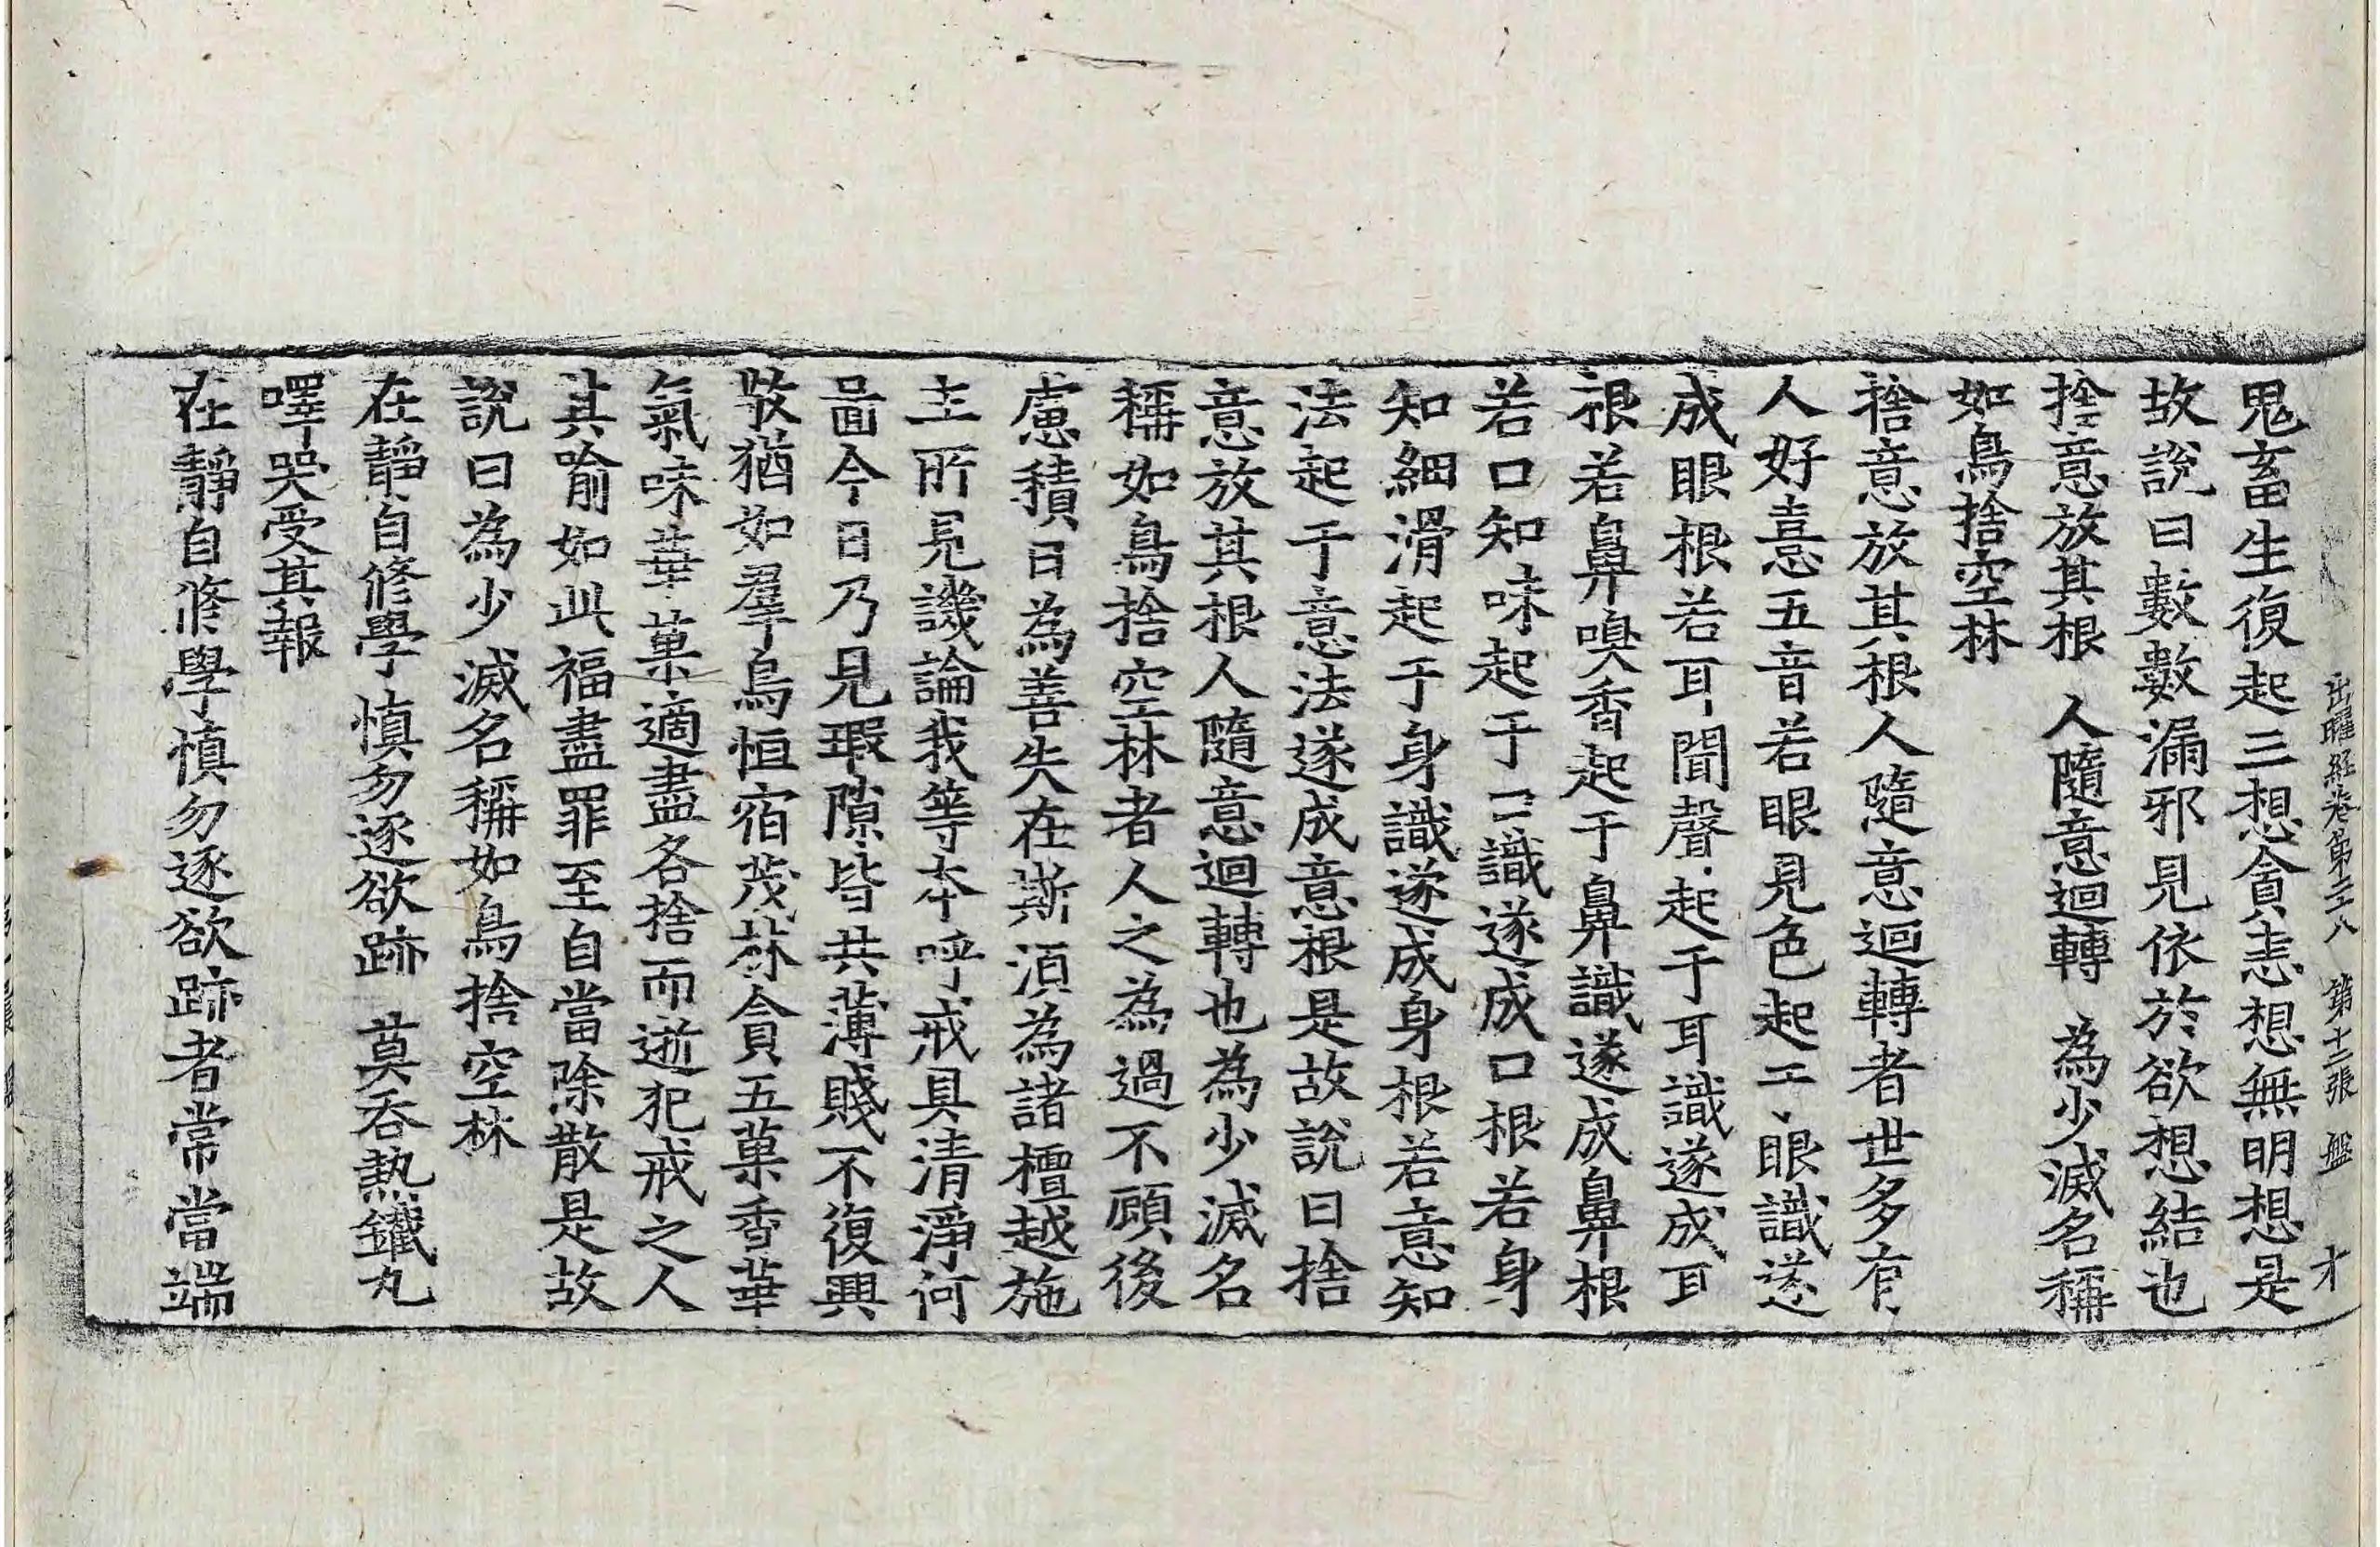 出曜経卷第二八 第十二張 盤 才
鬼畜生復起三想貪恚想無明想是
故說曰數數漏邪見依於欲想結也
捨意放其根 人隨意迴轉 為少滅名稱
如鳥捨空林
捨意放其根人隨意迴轉者世多有
人好憙五音若眼見色起于眼識遂
成眼根若耳聞聲起于耳識遂成耳
根若鼻嗅香起于鼻識遂成鼻根
若口知味起于口識遂成口根若身
知細滑起于身識遂成身根若意知
法起于意法遂成意根是故說曰捨
意放其根人隨意迴轉也為少滅名
稱如鳥捨空林者人之為過不顧後
慮積日為善失在斯須為諸檀越施
主所見譏論我等本呼戒具清淨何
啚今日乃見瑕隙皆共薄賤不復興
敬猶如羣鳥恒宿茂林貪五菓香華
氣味華菓適盡各捨而逝犯戒之人
其喻如此福盡罪至自當除散是故
說曰為少滅名稱如鳥捨空林
在靜自修學 慎勿逐欲跡 莫吞熱鐵丸
㘁哭受其報
在靜自修學慎勿逐欲跡者常當端